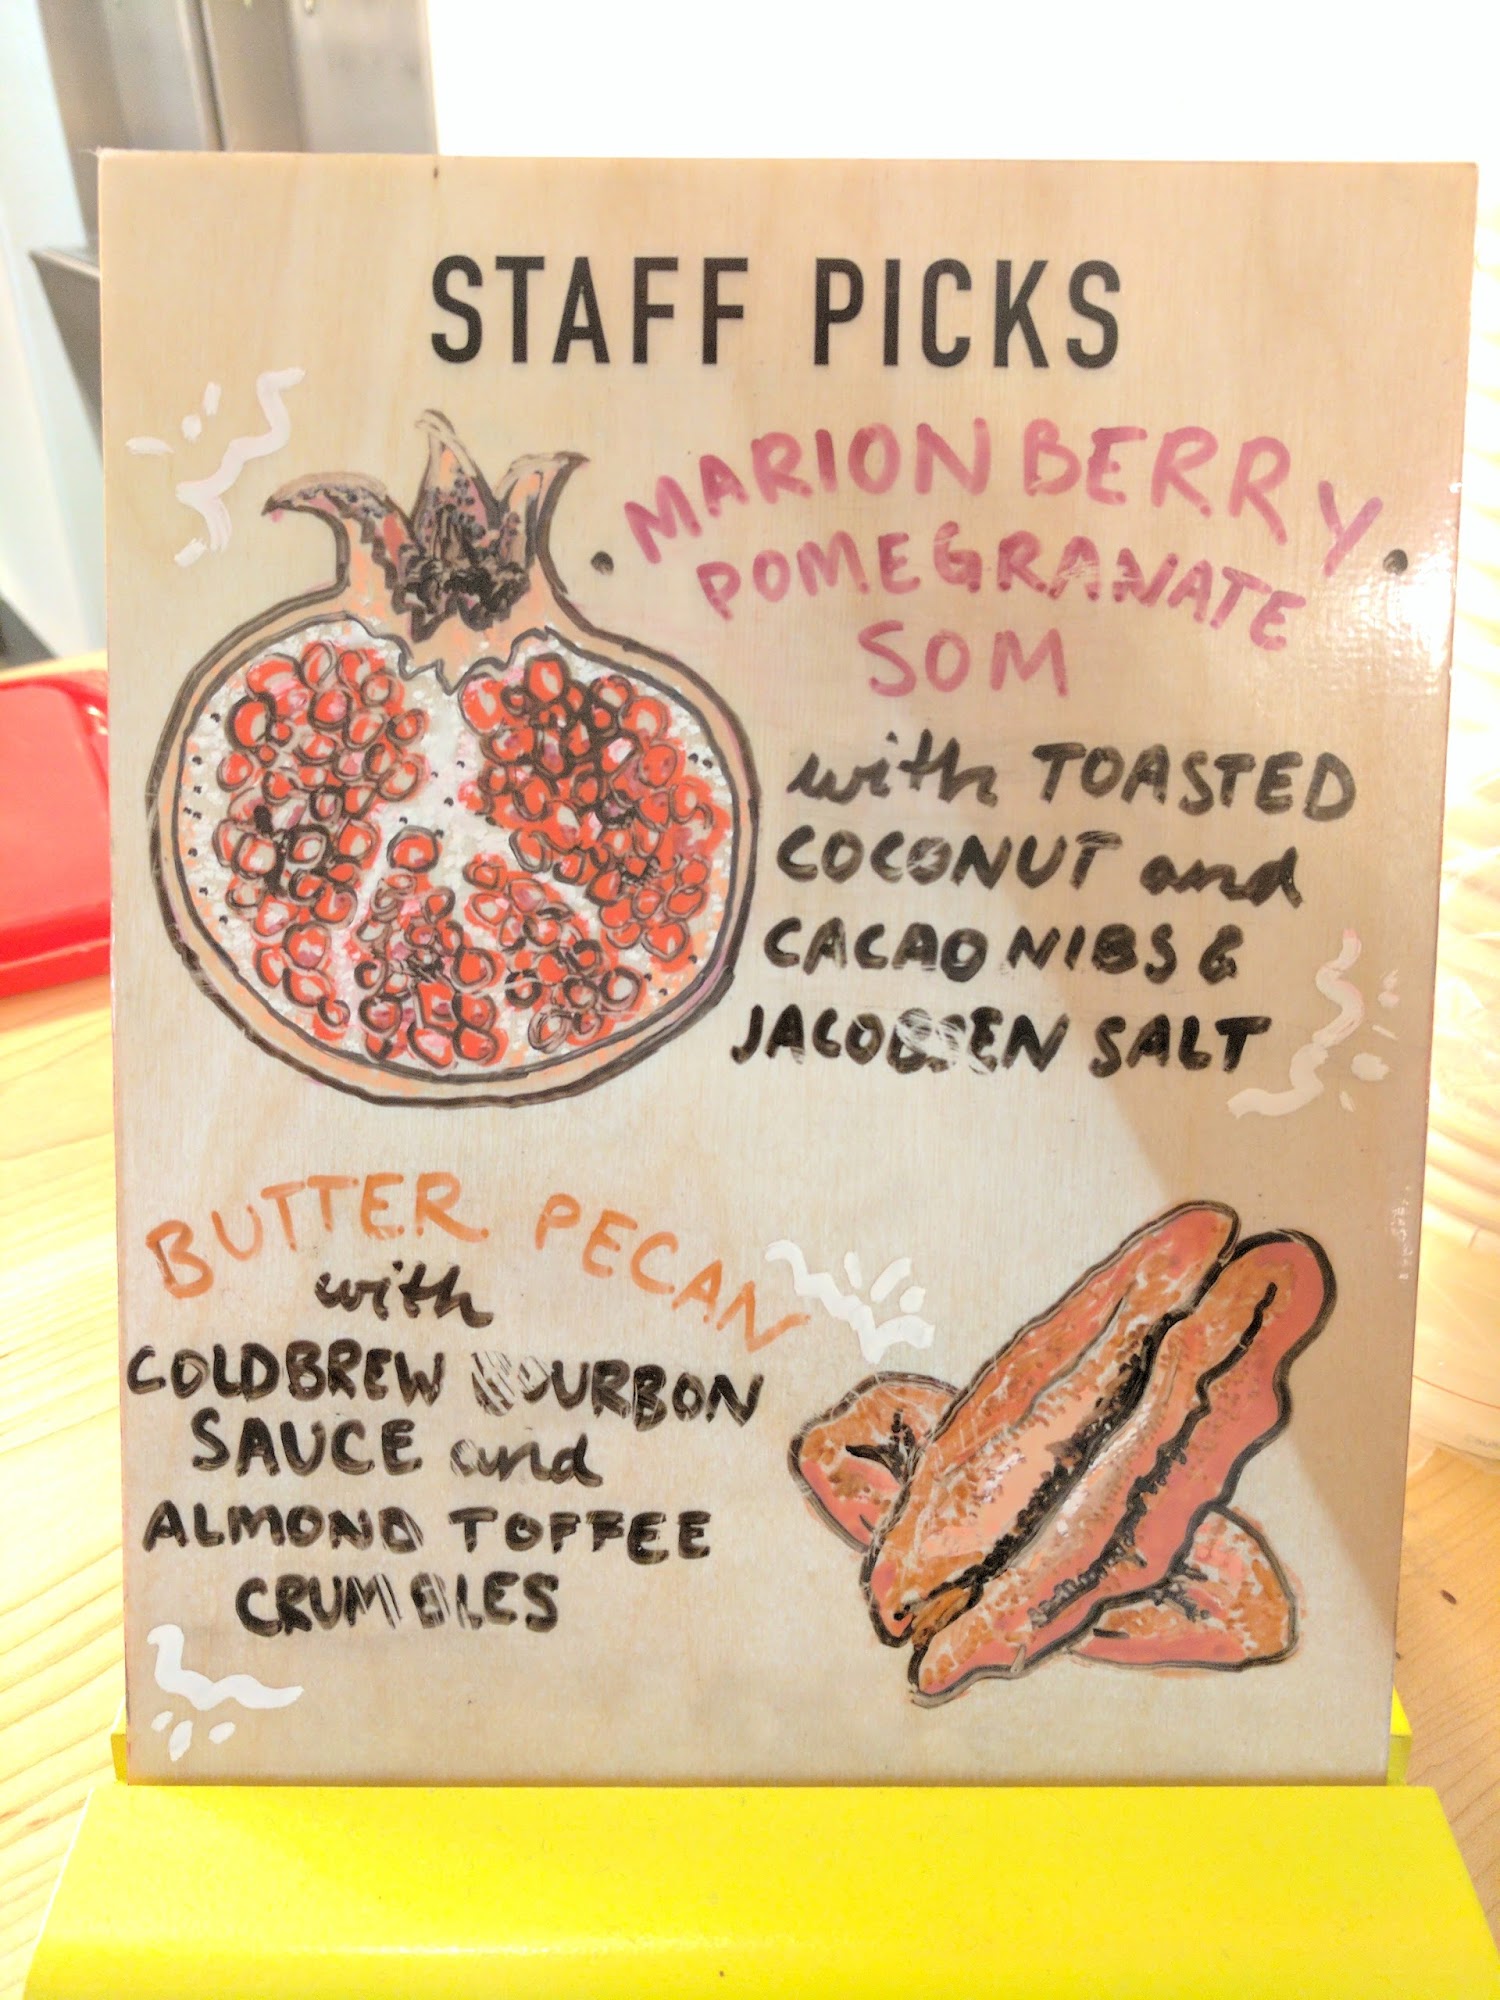 STAFF PICKS
MARIONBERRY
POMEGRANATE
SOM
with TOASTED
COCONUT and
CACAO NIBS &
JACOBSEN SALT
BUTTER PECAN
with
COLDBREW BOURBON
SAUCE and
ALMOND TOFFEE
CRUMBLES